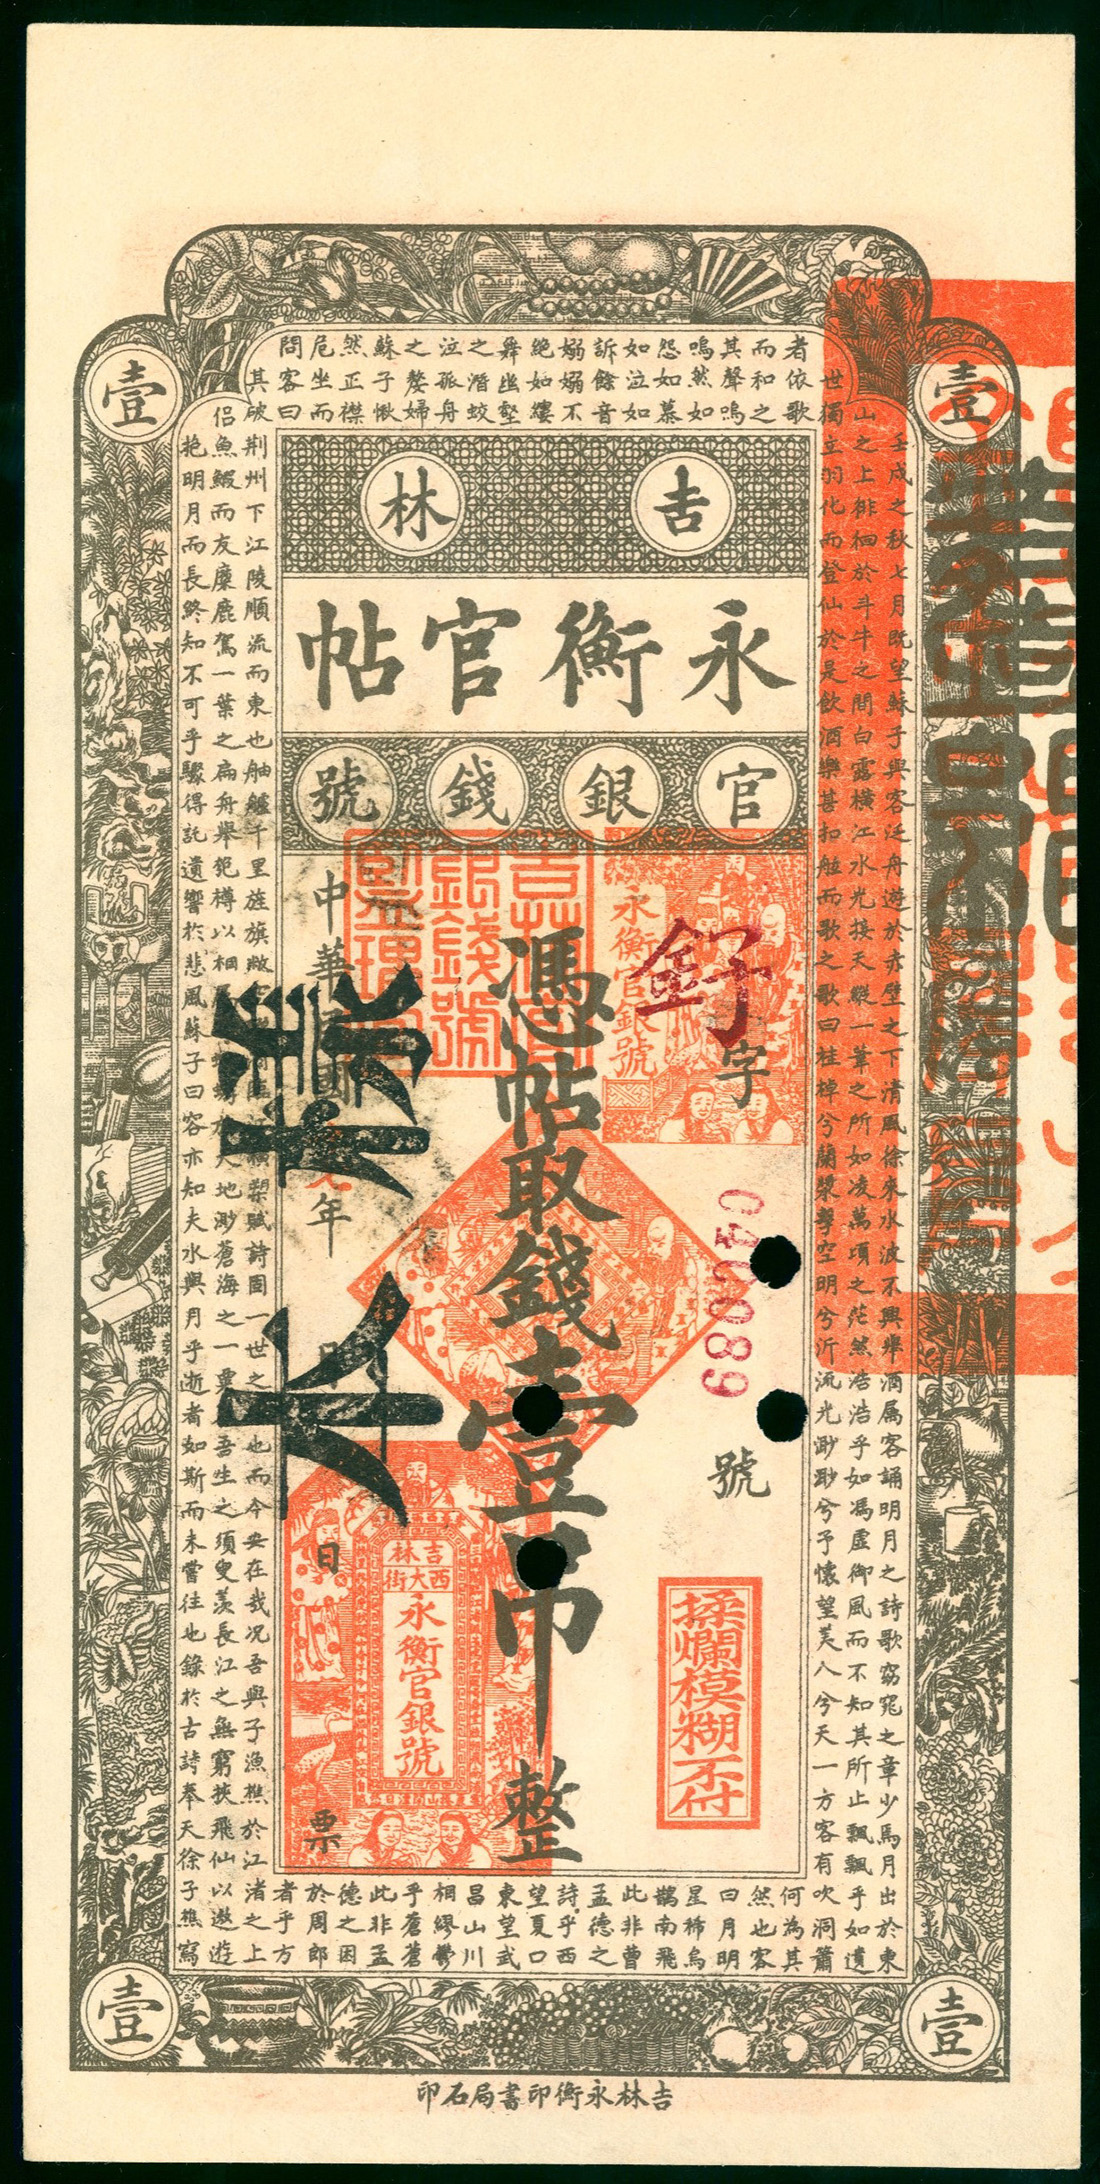 壹
壹
吉林
永衡官帖
官銀錢號
字
0460089
號
憑帖取錢壹吊整
中華
年
日
票
樣
本
永衡官銀號
吉林
西大街
永衡官銀號
揉爛模糊不付
壬戌之秋七月既望蘇子與客泛舟遊於赤壁之下清風徐來水波不興舉酒屬客誦明月之詩歌窈窕之章少焉月出於東
山之上徘徊於斗牛之間白露橫江水光接天縱一葦之所如凌萬頃之茫然浩浩乎如馮虛御風而不知其所止飄飄乎如遺
世獨立羽化而登仙於是飲酒樂甚扣舷而歌之歌曰桂棹兮蘭槳擊空明兮泝流光渺渺兮予懷望美人兮天一方客有吹洞簫
者依歌
而和之
其聲嗚
嗚然如
怨如慕
如泣如
訴餘音
嫋嫋不
絕如縷
舞幽壑
之潛蛟
泣孤舟
之嫠婦
蘇子愀
然正襟
危坐而
問客曰
何為其
然也客
曰月明
星稀烏
鵲南飛
此非曹
孟德之
詩乎西
望夏口
東望武
昌山川
相繆鬱
乎蒼蒼
此非孟
德之困
於周郎
者乎方
其破荊州下江陵順流而東也舳艫千里旌旗蔽槊賦詩固一世之也而今安在哉況吾與子漁樵於江渚之上
侶魚鰕而友麋鹿駕一葉之扁舟舉樽以相天地渺蒼海之一粟吾生之須臾羨長江之無窮挾飛仙以遨遊
抱明月而長終知不可乎驟得託遺響於悲風蘇子曰客亦知夫水與月乎逝者如斯而未嘗往也錄於古詩奉天徐子樵寫
壹
壹
吉林永衡印書局石印